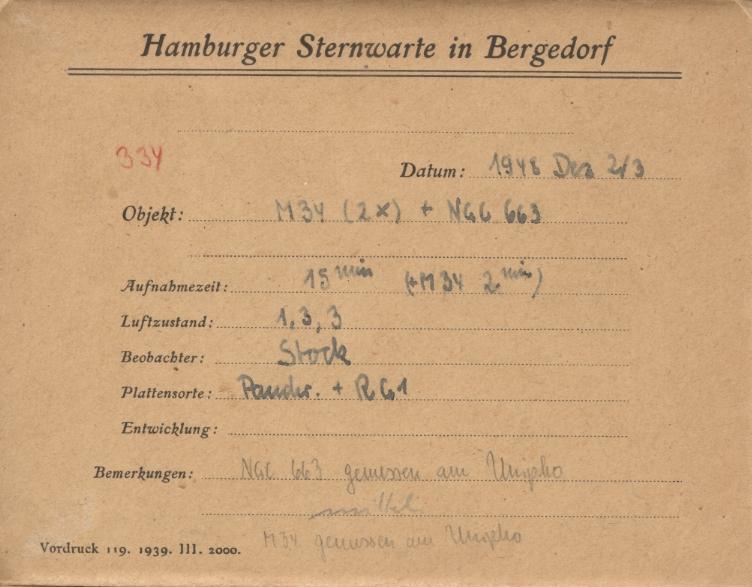 Hamburger Sternwarte in Bergedorf
334
Datum: 1948 Dez 2/3
Objekt: M34 (2x) + NGC 663
Aufnahmezeit: 15 min (+M34 2 min)
Luftzustand: 1, 3, 3
Beobachter: Stock
Plattensorte: Panchr. + RG1
Entwicklung:
Bemerkungen: NGC 663 gemessen am Unipho
M34 gemessen am Unipho
Vordruck 119. 1939. III. 2000.